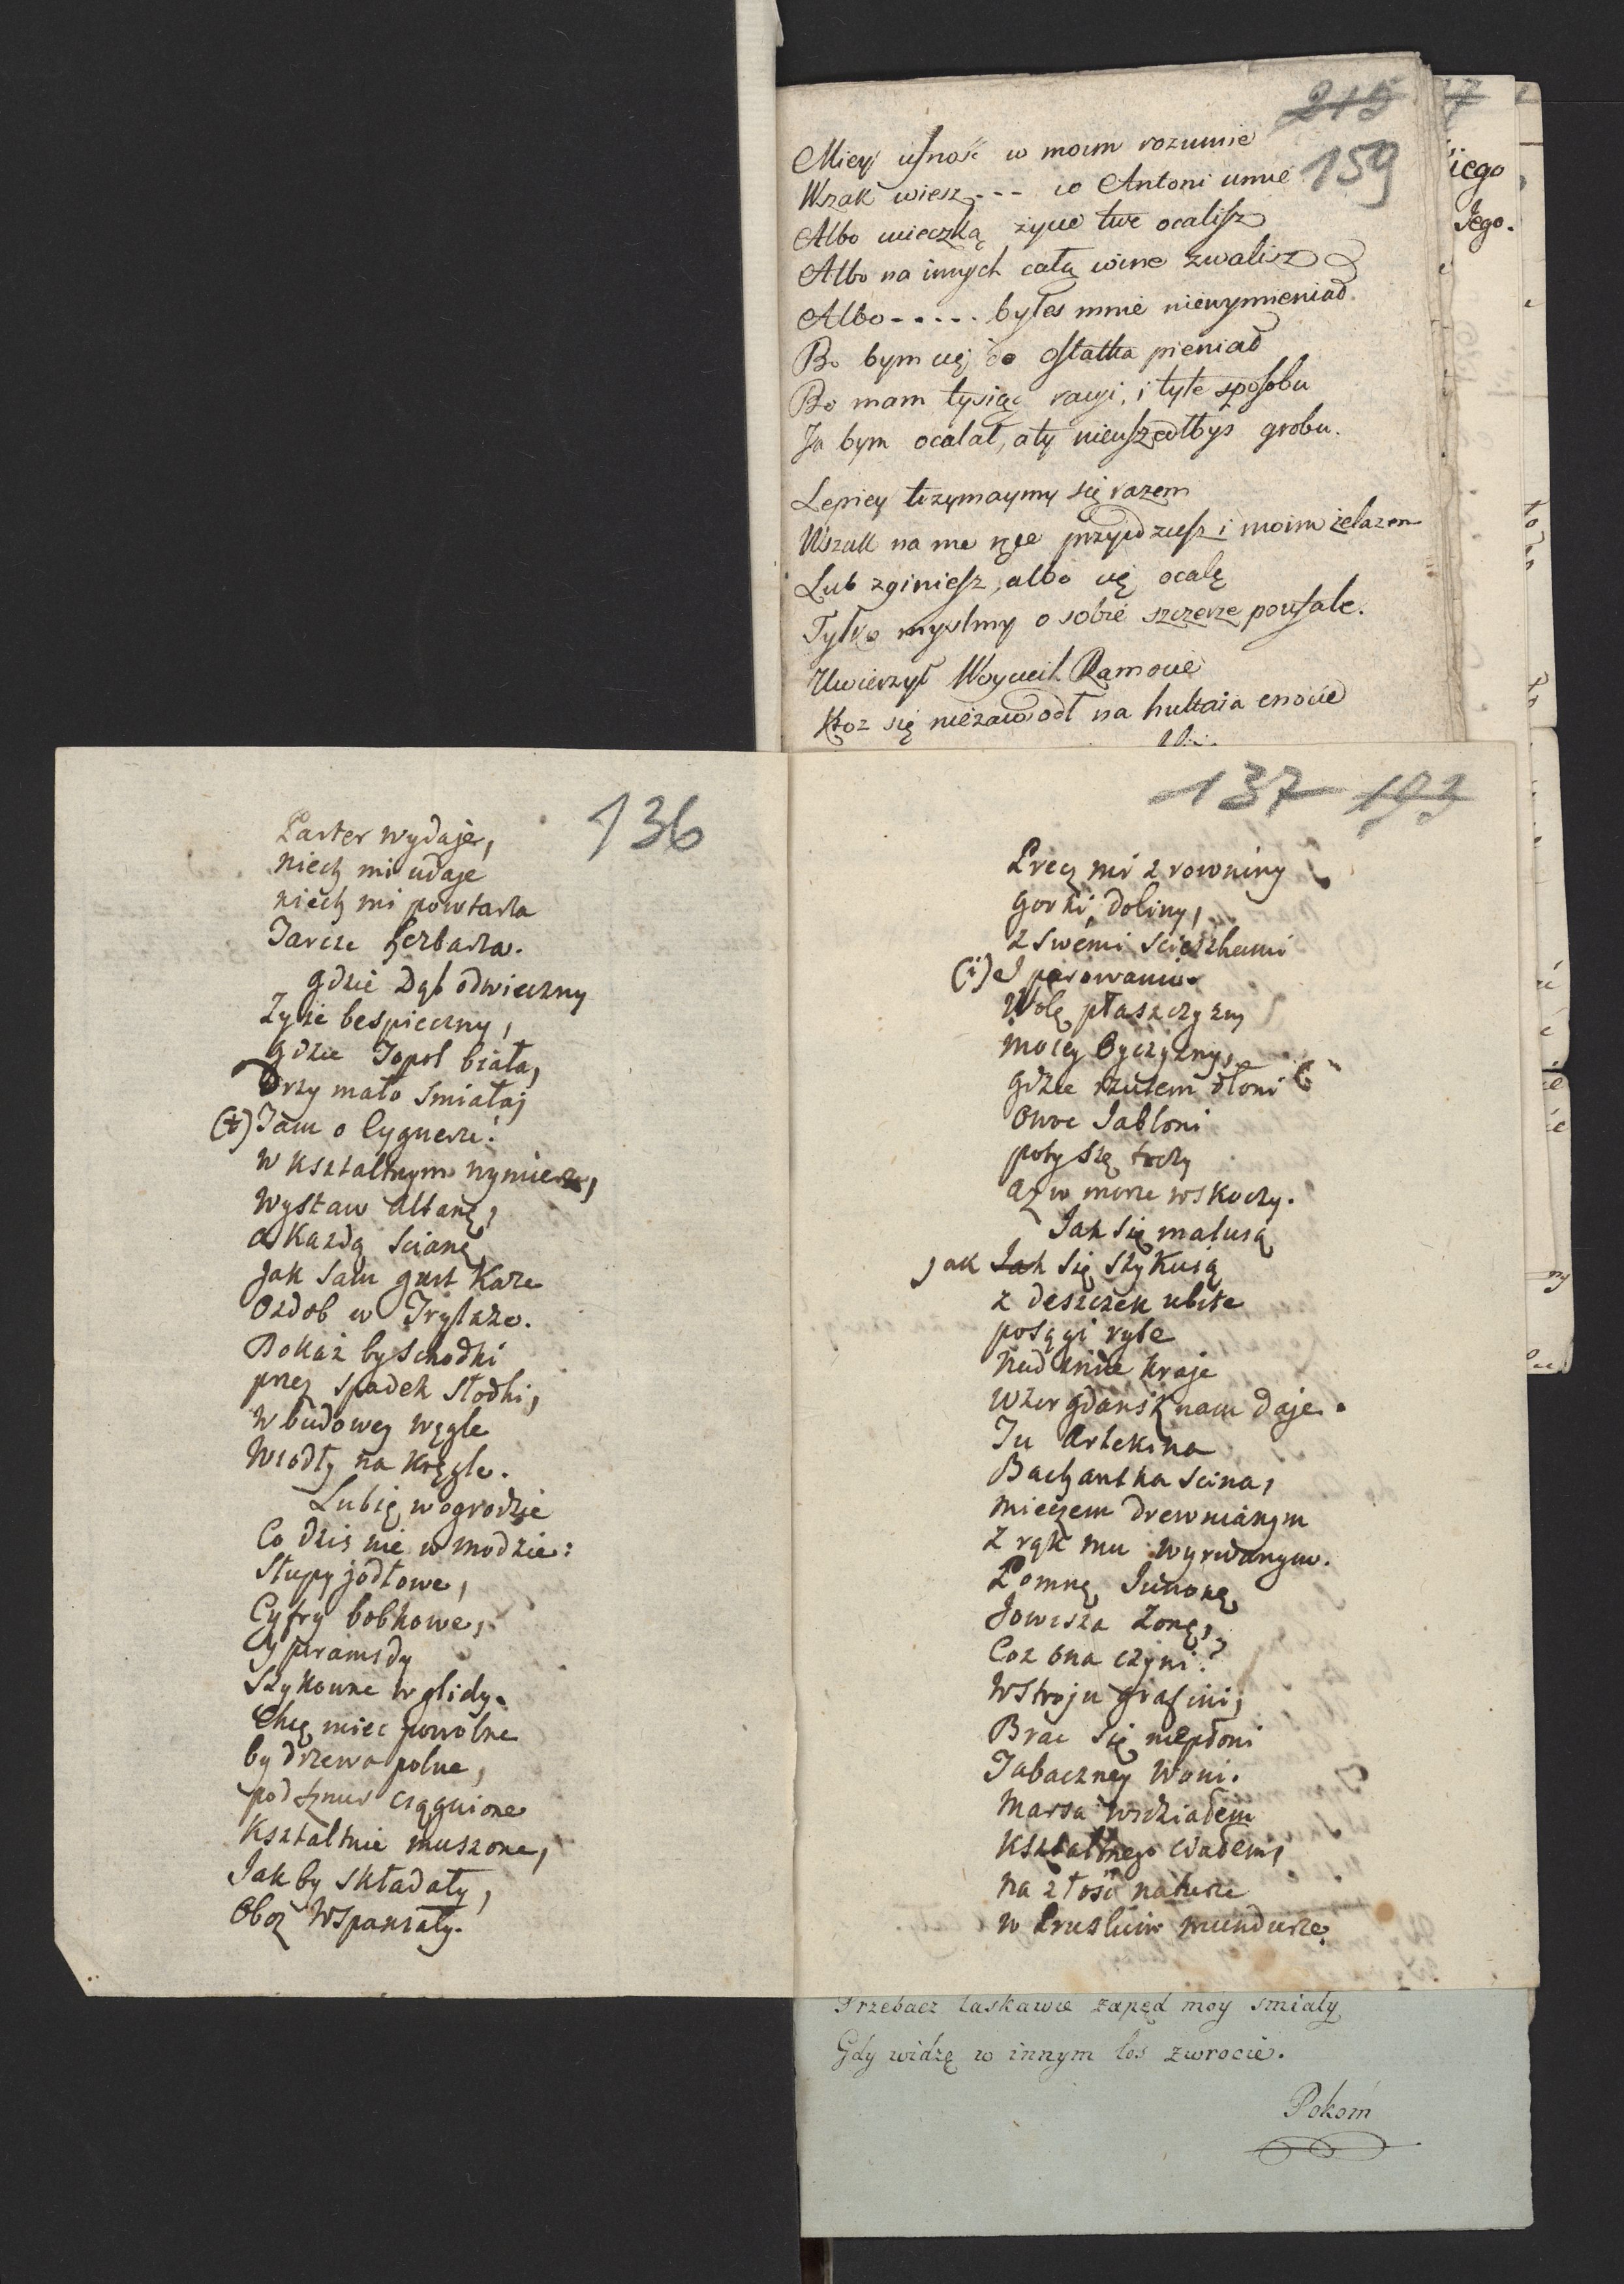 215
159
Miey ufność w moim rozumie
Wszak wiesz --- co Antoni umie
Albo ucieczką życie twe ocalisz
Albo na innych całą wine zwalisz
Albo ----- byłes mnie niewymieniał
Bo bym cię do ostatka pieniał
Bo mam tysiąc racyi, i tyle sposobu
Ja bym ocalał, a ty nieuszedłbys grobu.
Lepiey trzymaymy się razem
Wszak na me ręce przyidziesz i moim żelazem
Lub zginiesz, albo cię ocalę
Tylko myslmy o sobie szczerze poufale.
Uwierzył Woyciech Ramocie
Ktoz się niezawiodł na hultaia cnocie
iego
Jego.
136
Parter wydaje,
niech mi udaje
niech mi powtarza
Tarcze herbarza.
gdzie Dąb odwieczny
Zyie bespieczny,
gdzie Topol biała,
Drzy mało smiała;
(+) Tam o Cygnerze!
w kształtnym rymierze,
wystaw altanę,
a każdą scianę
Jak sam gust każe
Ozdob w Trylaże.
Pokaż by schodki
przez spadek słodki,
w budowey węgle
Wiodły na kręgle.
Lubię w ogrodzie
Co dzis nie w modzie:
słupy jodłowe,
Cyfry bobkowe,
y piramidy
szykowne w glidy.
Chcę miec powolne
by drzewa polne,
pod sznur ciągnione
kształtnie muszone,
Jak by składały,
Oboz wspaniały.
137 193
Precz mi z rowniny
gorki, doliny,
z swemi scieszkami
(i) I parowami.
Wolę płaszczyzny
moiey Oyczyzny,
gdzie rzutem dłoni
Owoc Jabłoni
poty się toczy
aż w morze wskoczy.
Jak się małusą
jak Jak się szykuią
z deszczek ubite
posągi ryte
nad inne kraje
wzor gdansk nam daje.
Tu Arlekina
Bachantka scina,
mieczem drewnianym
z rąk mu wyrwanym.
Pomnę Junonę
Jowisza żonę,
Coz ona czyni?
W stroju grafini,
Brac się niepłoni
Tabaczney woni.
Marsa widziałem
kształtnego ciałem,
na złość naturze
w Pruskim mundurze.
Przebacz łaskawie zapęd moy smiały
Gdy widzę w innym los zwrocie.
Pokorń